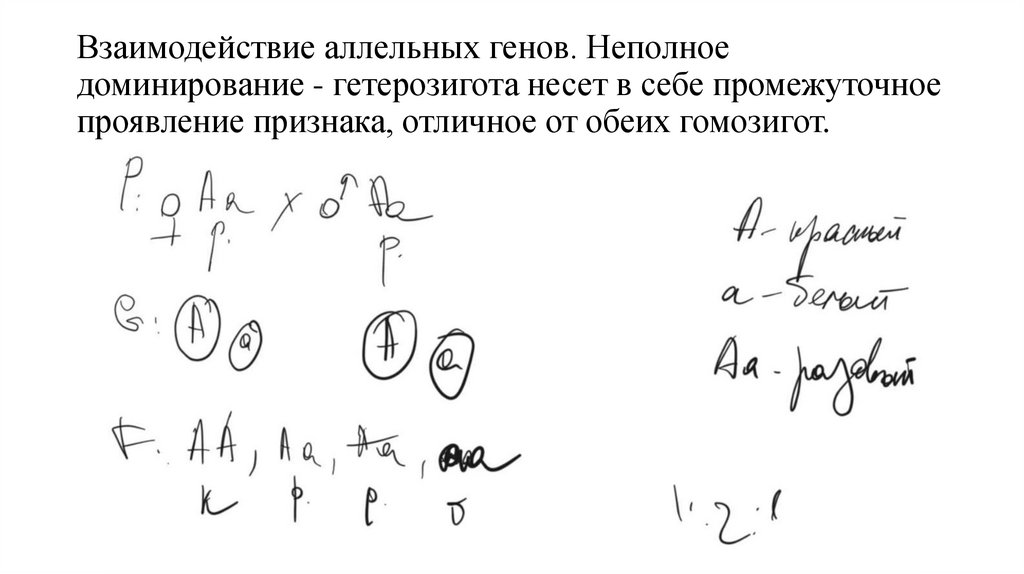 Взаимодействие аллельных генов. Неполное
доминирование - гетерозигота несет в себе промежуточное
проявление признака, отличное от обеих гомозигот.
P: ♀ Aa x ♂ Aa
р. р.
G: A a A a
F: AA, Aa, Aa, aa
к р. р. б
A - красный
a - белый
Aa - розовый
1:2:1